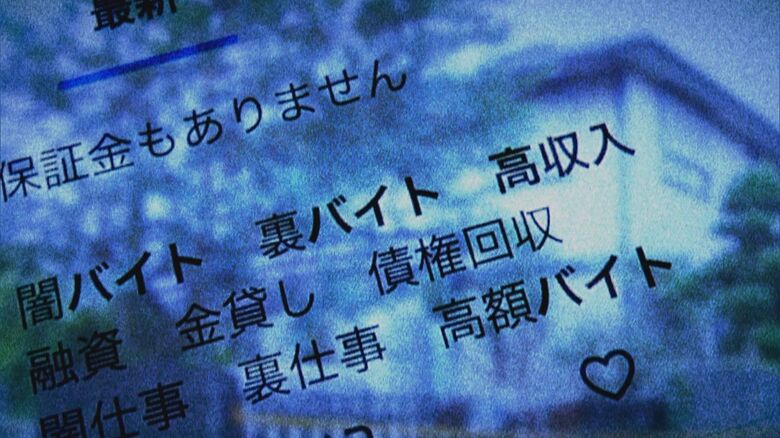 最新
保証金もありません
闇バイト　裏バイト　高収入
融資　金貸し　債権回収
闇仕事　裏仕事　高額バイト